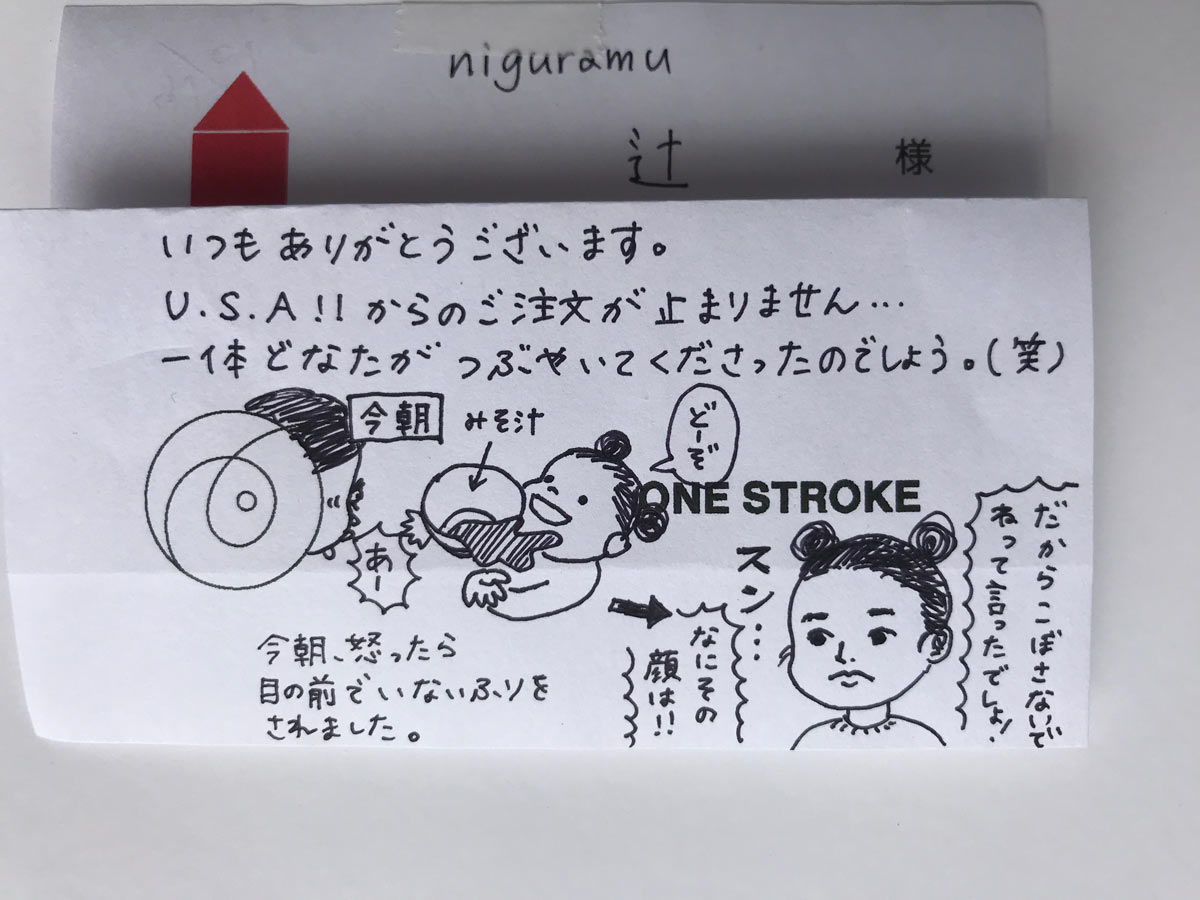 niguramu
辻 様
いつもありがとうございます。
U.S.A!!からのご注文が止まりません…
一体どなたがつぶやいてくださったのでしょう。(笑)
今朝
みそ汁
どーぞ
あー
ONE STROKE
今朝、怒ったら
目の前でいないふりを
されました。
スン…
なにその
顔は!!
だからこぼさないで
ねって言ったでしょ!